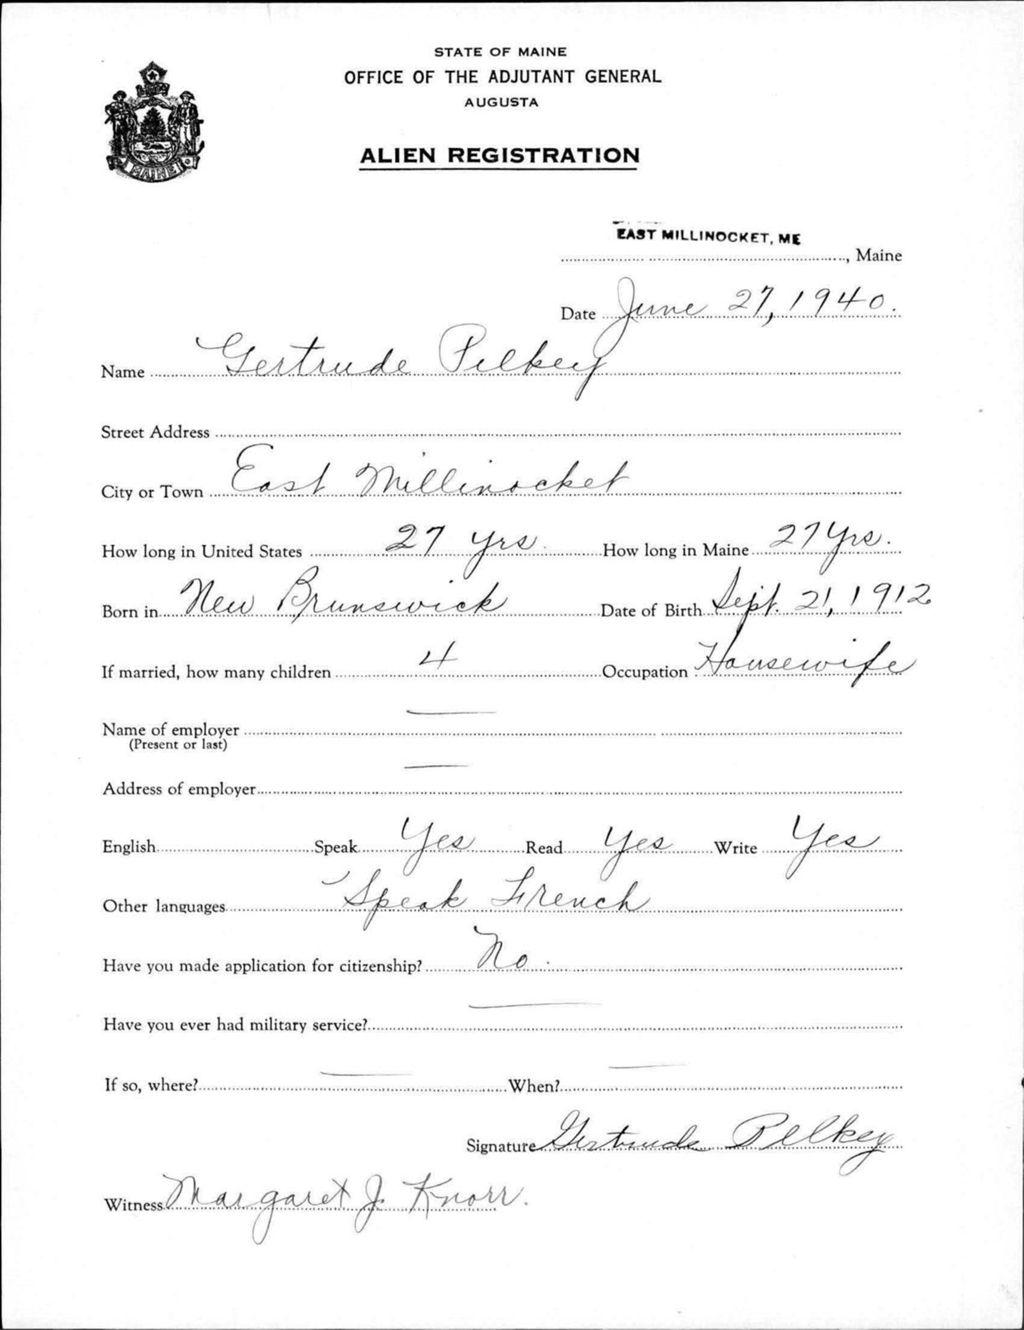 STATE OF MAINE
OFFICE OF THE ADJUTANT GENERAL
AUGUSTA
ALIEN REGISTRATION
MAINE
EAST MILLINOCKET, ME
, Maine
Date June 27, 1940.
Name Gertrude Pelkey
Street Address
City or Town East Millinocket
How long in United States 27 yrs. How long in Maine 27 yrs.
Born in New Brunswick Date of Birth Sept. 21, 1912
If married, how many children 4 Occupation Housewife
Name of employer
(Present or last)
Address of employer
English Speak Yes Read Yes Write Yes
Other languages Speak French
Have you made application for citizenship? No.
Have you ever had military service?
If so, where? When?
Signature Gertrude Pelkey
Witness Margaret J. Knorr.